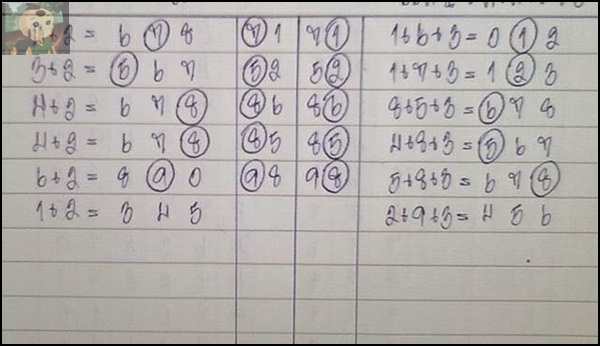 +2 = 6 7 8 71 71 1+6+3 = 0 1 2
3+2 = 5 6 7 52 52 1+7+3 = 1 2 3
4+2 = 6 7 8 86 86 8+5+3 = 6 7 8
4+2 = 6 7 8 85 85 4+8+3 = 5 6 7
6+2 = 8 9 0 98 98 5+8+3 = 6 7 8
1+2 = 3 4 5 2+9+3 = 4 5 6